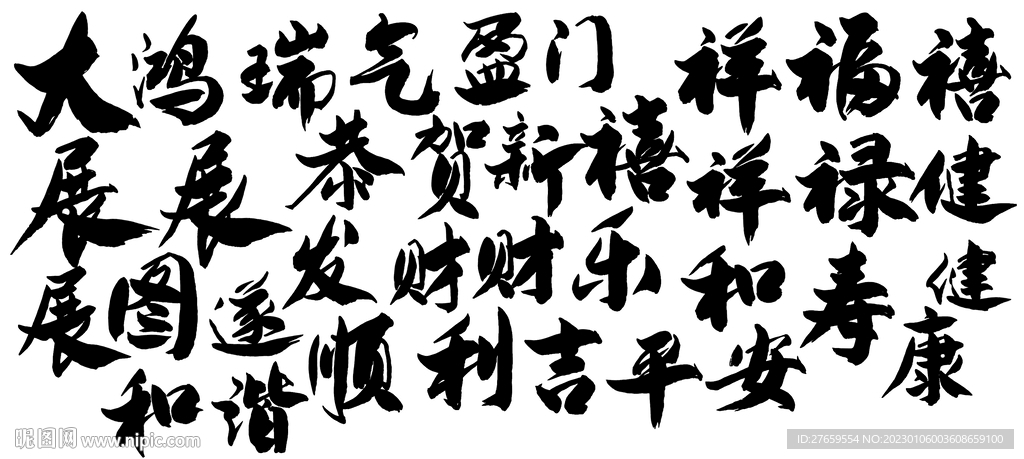 大鸿瑞气盈门祥福禧
展展恭贺新禧祥禄健
展图遂发财财乐和寿健
顺利吉平安康
和谐
昵图网 www.nipic.com
ID:27659554 NO:20230106003608659100